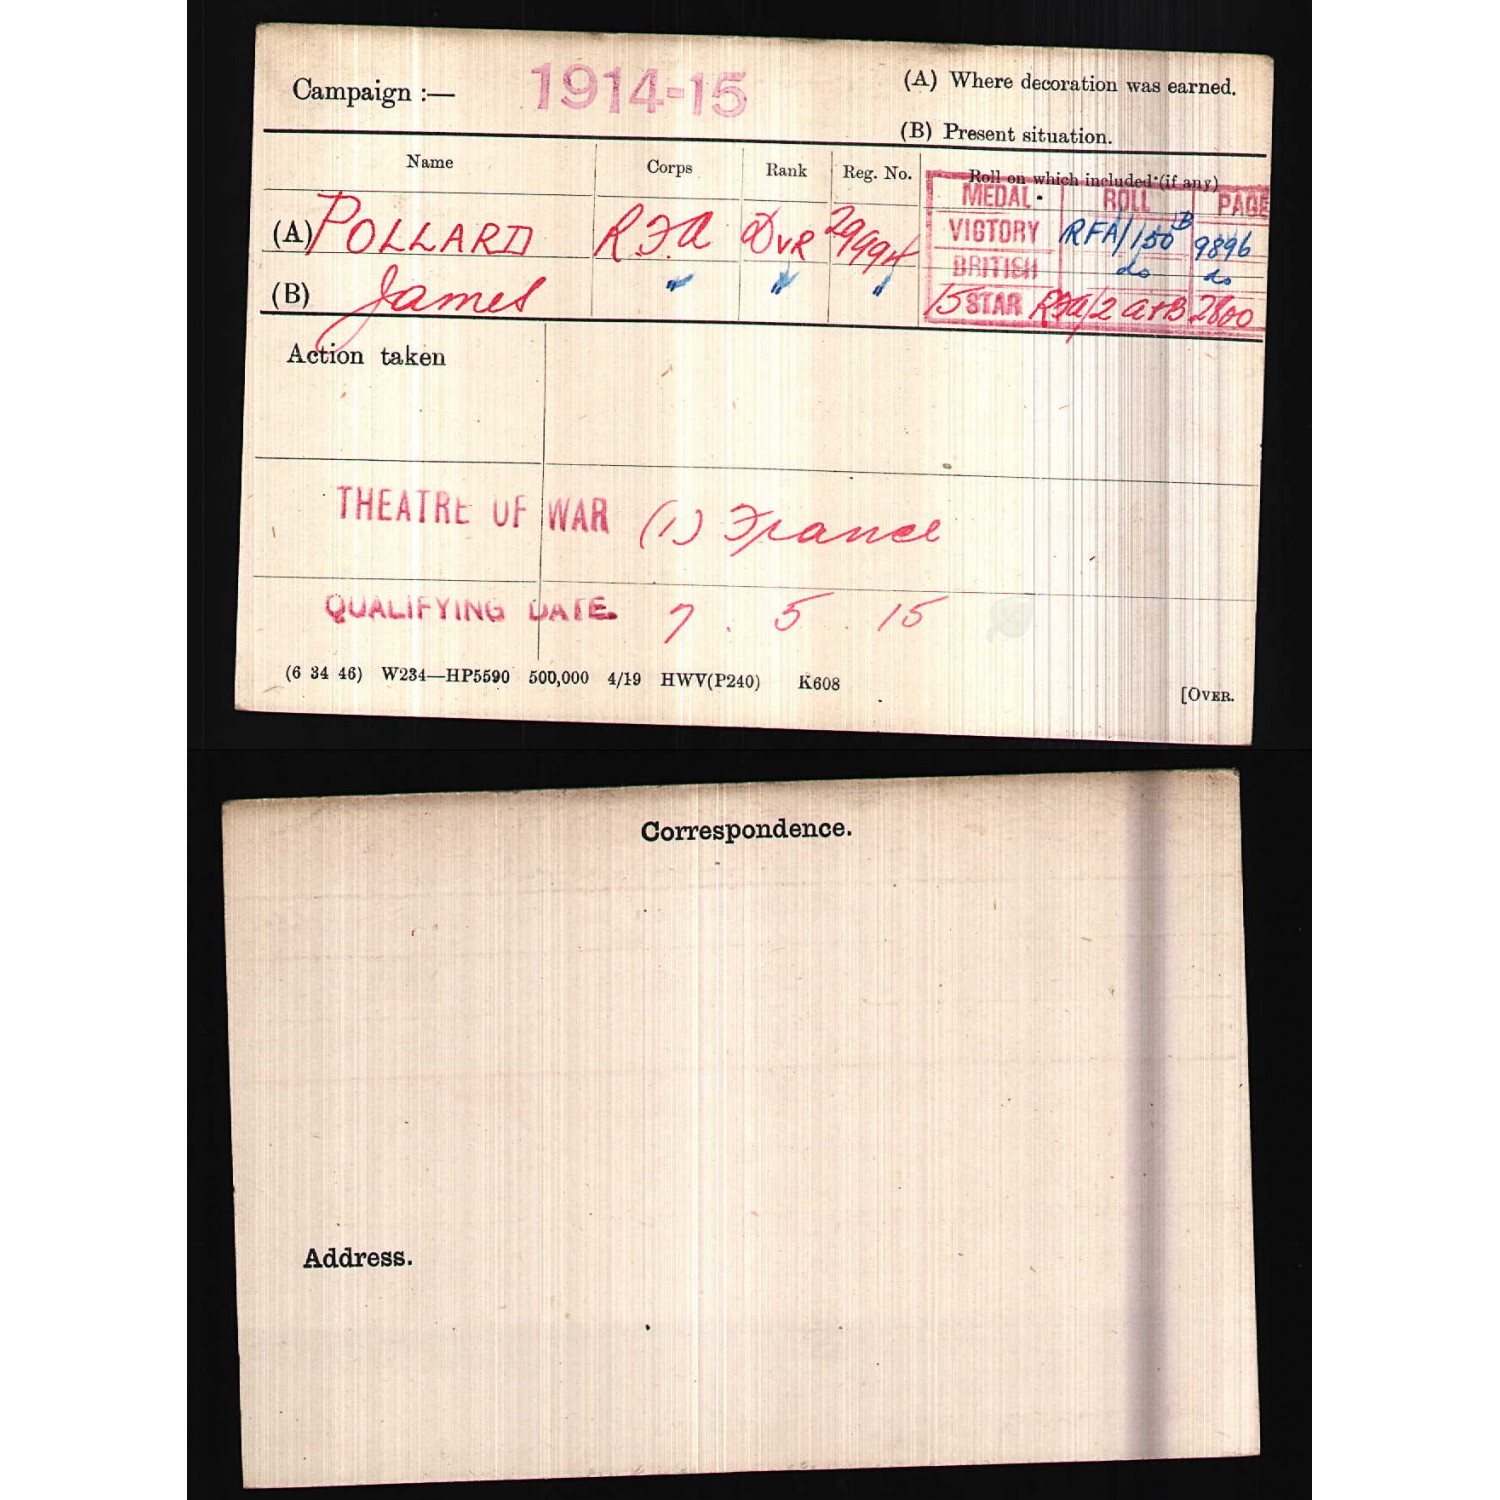 Campaign :— 1914-15 (A) Where decoration was earned.
(B) Present situation.
Name Corps Rank Reg. No. Roll on which included (if any)
MEDAL ROLL PAGE
(A) POLLARD R.F.A DVR VICTORY RFA/150B 9896
BRITISH do do
(B) James " " " 15 STAR RFA/2 A+B 2800
Action taken
THEATRE OF WAR (1) France
QUALIFYING DATE. 7. 5. 15
(6 34 46) W234—HP5590 500,000 4/19 HWV(P240) K608 [OVER.
Correspondence.
Address.